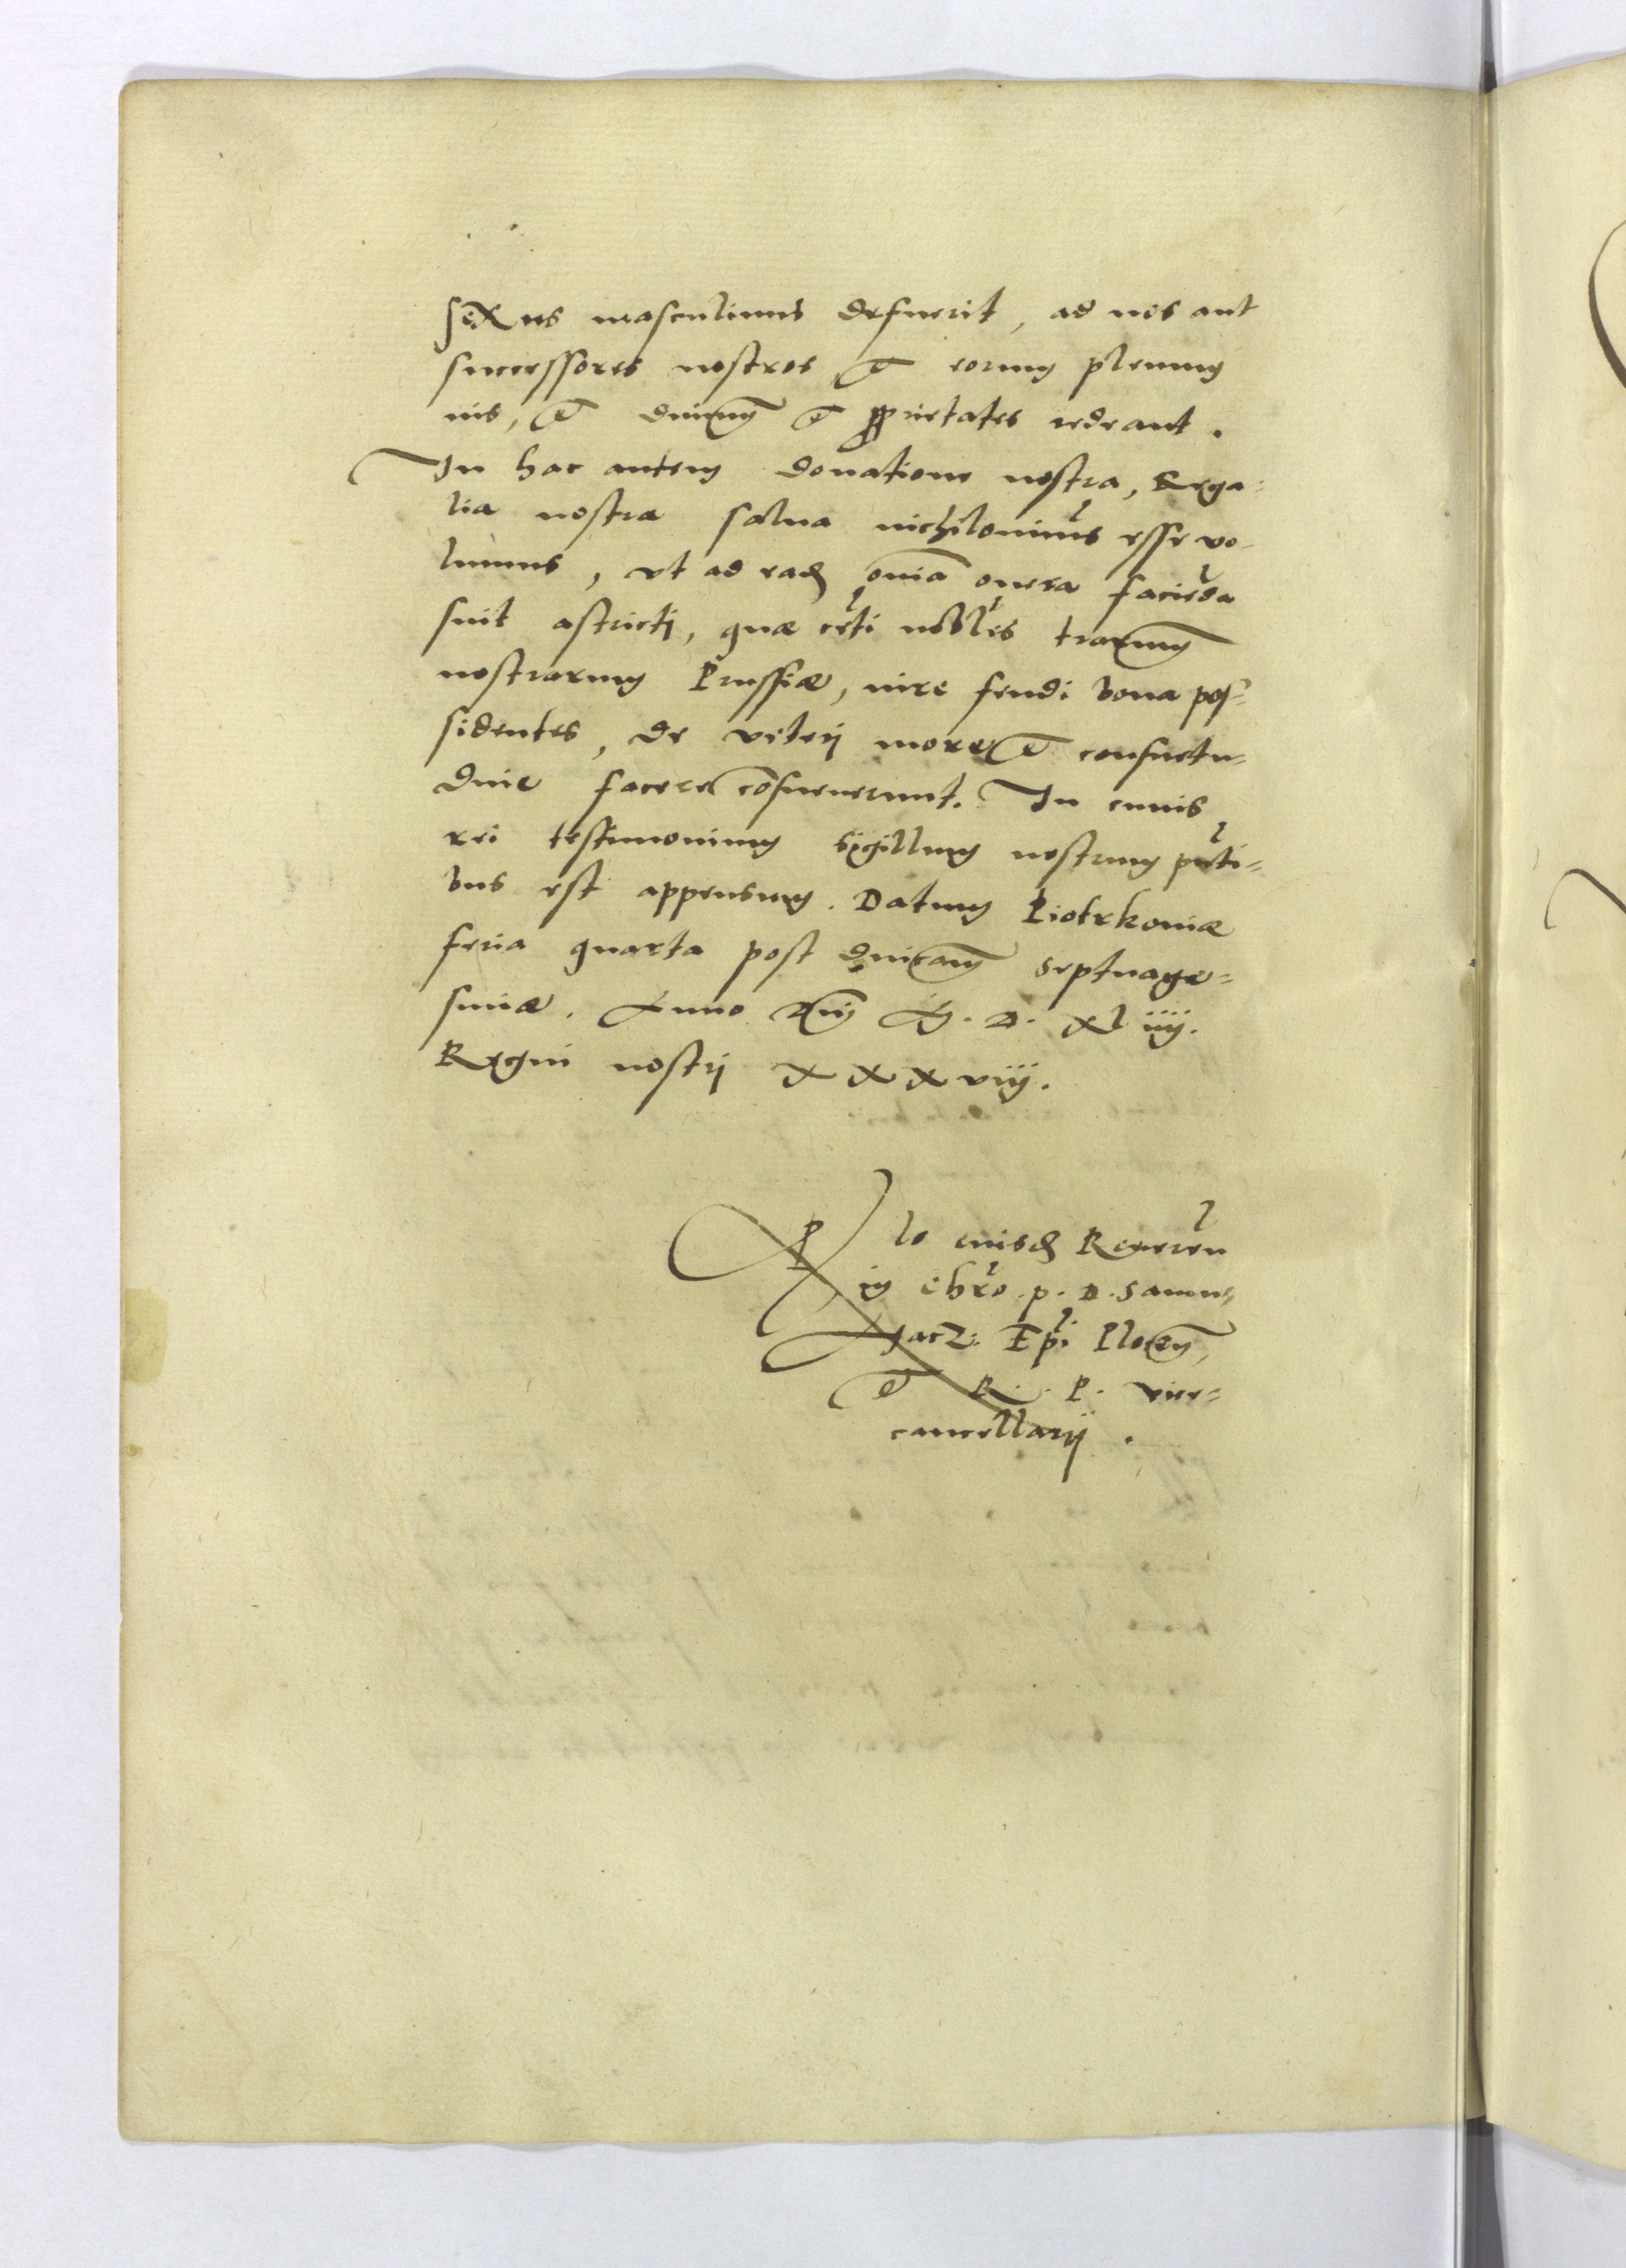 sexus masculinus defuerit, ad nos aut
successores nostros, et eorum plenum
ius, et dnium et pprietates redeant.
In hac autem donatione nostra, Rega-
lia nostra salua nichilominus esse vo-
lumus, vt ad eadem omnia onera facienda
sint astricti, quæ ceteri nobiles trarum
nostrarum Prussiæ, iure feudi bona pos-
sidentes, de veteri more et consuetu-
dine facere consueuerunt. In cuius
rei testimonium sigillum nostrum pnti-
bus est appensum. Datum Piotrkoviæ
feria quarta post dnicam septuage-
simæ. Anno Dni M. D. xl iiij.
Regni nostri x x x viij.
Rlo eiusdem Reueren
in Chro. p. D. Samu
Epi Plocen,
et R. P. vice-
cancellarij.